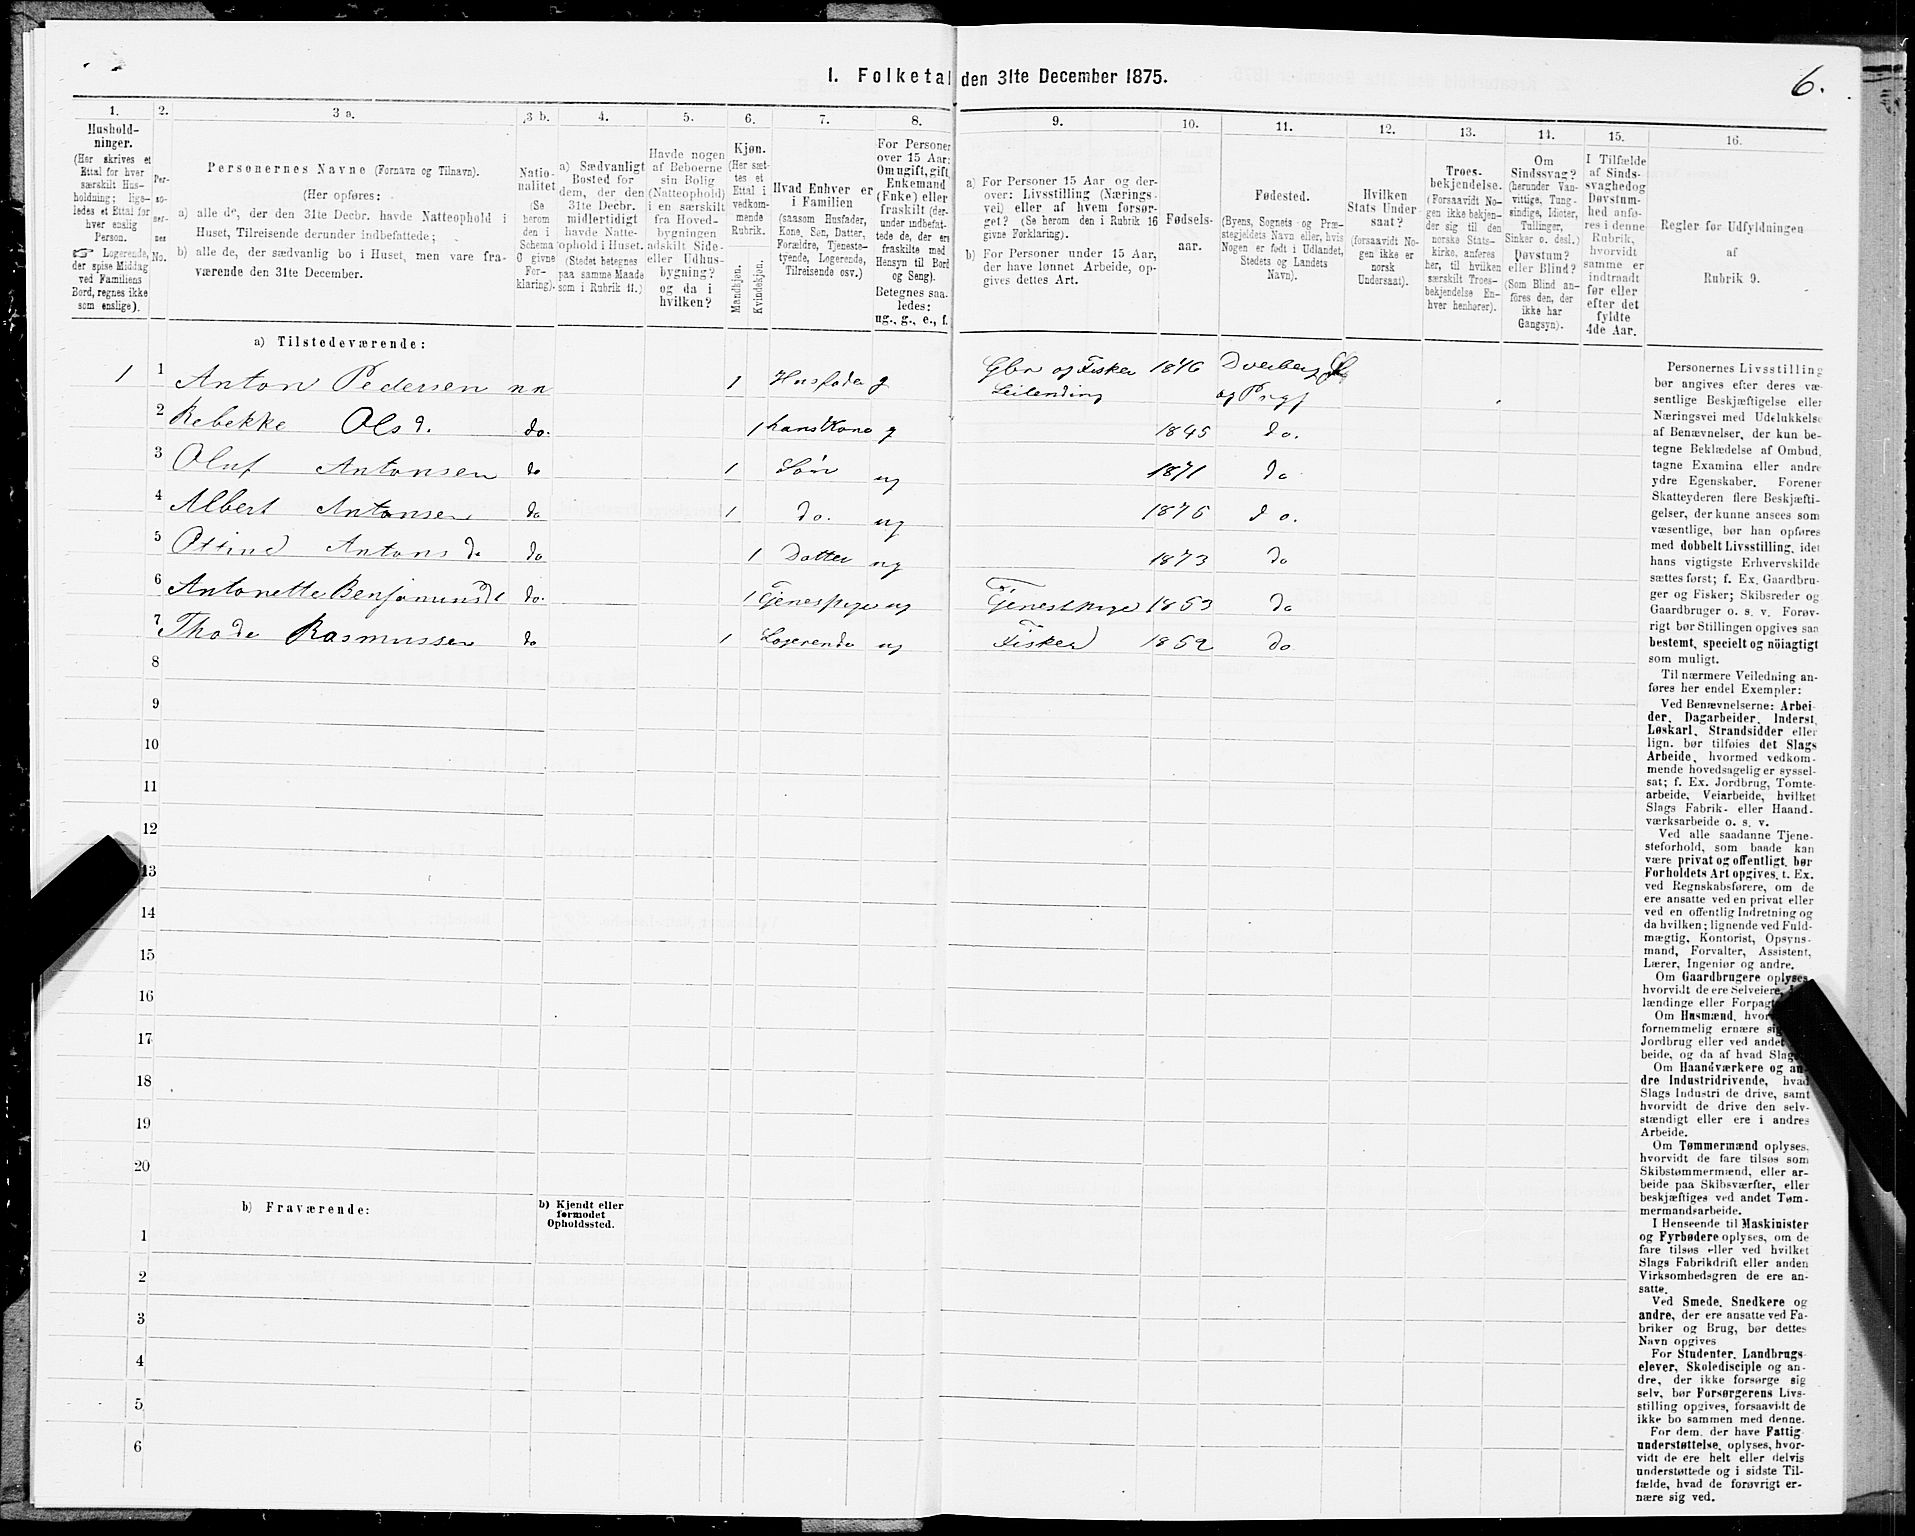 I. Folketal den 31te December 1875.
6.
1.
Hushold-
ninger.
(Her skrives et
Ettal for hver
særskilt Hus-
holdning; lige-
ledes et Ettal for
hver enslig
Person.
☞ Logerende,
der spise Middag
ved Familiens
Bord, regnes ikke
som enslige).
2.
Per-
so-
ner-
nes
No.
3 a.
Personernes Navne (Fornavn og Tilnavn).
(Her opføres:
a) alle de, der den 31te Decbr. havde Natteophold i
Huset, Tilreisende derunder indbefattede;
b) alle de, der sædvanlig bo i Huset, men vare fra-
værende den 31te December.
3 b.
Natio-
nalitet
(Se
herom
den i
Schema
O givne
For-
klaring).
4.
a) Sædvanligt
Bosted for
dem, der den
31te Decbr.
midlertidigt
havde Natte-
ophold i Huset.
(Stedet betegnes
paa samme Maade
som i Rubrik 11.)
5.
Havde nogen
af Beboerne
sin Bolig
(Natteophold)
i en særskilt
fra Hoved-
bygningen
adskilt Side-
eller Udhus-
bygning?
og da i
hvilken?
6.
Kjøn.
(Her sæt-
tes et
Ettal i
vedkom-
mende
Rubrik.
Mandkjøn.
Kvindekjøn.
7.
Hvad Enhver er
i Familien
(saasom Husfader,
Kone, Søn, Datter,
Forældre, Tjeneste-
tyende, Logerende,
Tilreisende osv.)
8.
For Personer
over 15 Aar:
Om ugift, gift,
Enkemand
(Enke) eller
fraskilt (der-
under indbefat-
tede de, der ere
fraskilte med
Hensyn til Bord
og Seng).
Betegnes saa-
ledes:
ug., g., e., f.
9.
a) For Personer 15 Aar og der-
over: Livsstilling (Nærings-
vei) eller af hvem forsør-
get? (Se herom den i Rubrik 16
givne Forklaring).
b) For Personer under 15 Aar,
der have lønnet Arbeide, op-
gives dettes Art.
10.
Fødsels-
aar.
11.
Fødested.
(Byens, Sognets og Præ-
stegjeldets Navn eller, hvis
Nogen er født i Udlandet,
Stedets og Landets
Navn).
12.
Hvilken
Stats Under-
saat?
(forsaavidt No-
gen ikke er
norsk
Undersaat).
13.
Troes-
bekjendelse.
(Forsaavidt No-
gen ikke bekjen-
der sig til den
norske Stats-
kirke, anføres
her, til hvilken
særskilt Troes-
bekjendelse En-
hver henhører).
14.
Om
Sindssvag?
(herunder Van-
vittige, Tung-
sindige, Idioter,
Tullinger,
Sinker o. desl.)
Døvstum?
eller Blind?
(Som Blind an-
føres den, der
ikke har
Gangsyn).
15.
I Tilfælde
af Sinds-
svaghedog
Døvstum-
hed anfø-
res i denne
Rubrik,
hvorvidt
samme er
indtraadt
før eller
efter det
fyldte
4de Aar.
16.
Regler for Udfyldningen
af
Rubrik 9.
a) Tilstedeværende:
1 1 Anton Pedersen nn 1 Husfader g Gbr og Fisker 1846 Dverberg
Leilending og Prgj
2 Rebekke Olsd. do. 1 hans Kone g 1845 do.
3 Oluf Antonsen do 1 Søn ug 1871 do
4 Albert Antonsen do 1 do. ug 1875 do.
5 Ottine Antonsd do 1 Datter ug 1873 do
6 Antonette Benjaminsd do. 1 Tjenespige ug Tjenestpige 1853 do
7 Thode Rasmussen do 1 Logerende ug Fisker 1852 do
8
9
10
11
12
13
14
15
16
17
18
19
20
b) Fraværende:
b) Kjendt eller
formodet
Opholdssted.
1
2
3
4
5
6
Personernes Livsstilling
bør angives efter deres væ-
sentlige Beskjæftigelse eller
Næringsvei med Udelukkelse
af Benævnelser, der kun be-
tegne Beklædelse af Ombud,
tagne Examina eller andre
ydre Egenskaber. Forener
Skatteyderen flere Beskjæfti-
gelser, der kunne ansees som
væsentlige, bør han opføres
med dobbelt Livsstilling, idet
hans vigtigste Erhvervskilde
sættes først; f. Ex. Gaardbru-
ger og Fisker; Skibsreder og
Gaardbruger o. s. v. Forøv-
rigt bør Stillingen opgives saa
bestemt, specielt og nöiagtigt
som muligt.
Til nærmere Veiledning an-
føres her endel Exempler:
Ved Benævnelserne: Arbei-
der, Dagarbeider, Inderst,
Løskarl, Strandsidder eller
lign. bør tilføies det Slags
Arbeide, hvormed vedkom-
mende hovedsagelig er syssel-
sat; f. Ex. Jordbrug, Tomte-
arbeide, Veiarbeide, hvilket
Slags Fabrik- eller Haand-
værksarbeide o. s. v.
Ved alle saadanne Tjene-
steforhold, som baade kan
være privat og offentligt, bør
Forholdets Art opgives, t. Ex.
ved Regnskabsførere, om de
ere ansatte ved en privat eller
ved en offentlig Indretning og
da hvilken; lignende ved Fuld-
mægtig, Kontorist, Opsyns-
mand, Forvalter, Assistent,
Lærer, Ingeniør og andre.
Om Gaardbrugere oplyses,
hvorvidt de ere Selveiere,
lændinge eller
Om Husmænd,
fornemmelig ernære
Jordbrug eller ved andet
beide, og da af hvad
Om Haandværkere og an-
dre Industridrivende, hvad
Slags Industri de drive, samt
hvorvidt de drive den selv-
stændigt eller ere i andres
Arbeide.
Om Tømmermænd oplyses,
hvorvidt de fare tilsøs som
Skibstømmermænd, eller ar-
beide paa Skibsværfter, eller
beskjæftiges ved andet Tøm-
mermandsarbeide.
I Henseende til Maskinister
og Fyrbødere oplyses, om de
fare tilsøs eller ved hvilket
Slags Fabrikdrift eller anden
Virksomhedsgren de ere an-
satte.
Ved Smede, Snedkere og
andre, der ere ansatte ved Fa-
briker og Brug, bør dettes
Navn opgives
For Studenter, Landbrugs-
elever, Skoledisciple og an-
dre, der ikke forsørge sig
selv, bør Forsørgerens Livs-
stilling opgives, forsaavidt de
ikke bo sammen med denne.
For dem, der have Fattig-
understøttelse, oplyses, hvor-
vidt de ere helt eller delvis
understøttede og i sidste Til-
fælde, hvad de forøvrigt er-
nære sig ved.